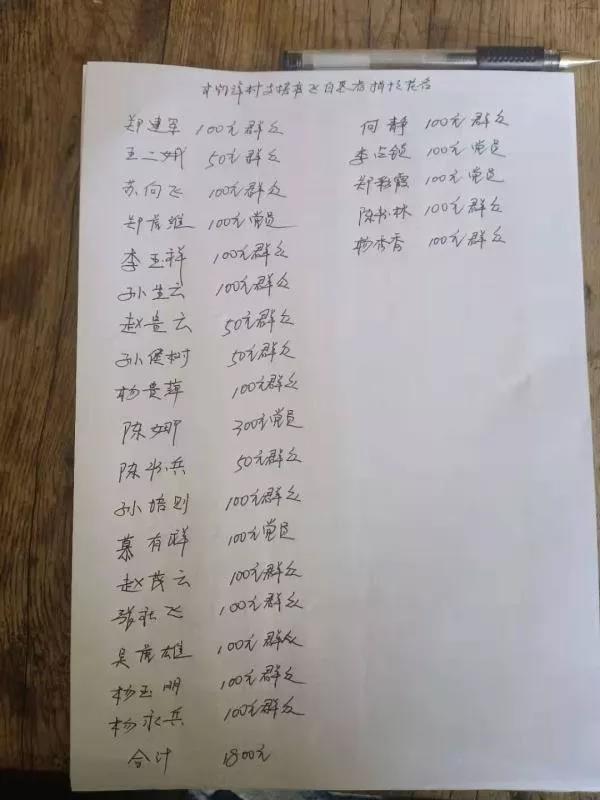 郑建军 100元群众
王二娥 50元群众
苏向飞 100元群众
郑彦维 100元党员
李玉祥 100元群众
孙生云 100元群众
赵贵云 50元群众
孙侯树 50元群众
杨贵萍 100元群众
陈娜 300元党员
陈兵 50元群众
孙培则 100元群众
慕有祥 100元党员
赵茂云 100元群众
张飞 100元群众
吴彦雄 100元群众
杨玉明 100元群众
杨永兵 100元群众
合计 1800元
何静 100元群众
李 100元党员
郑彩霞 100元党员
陈林 100元群众
杨秀香 100元群众